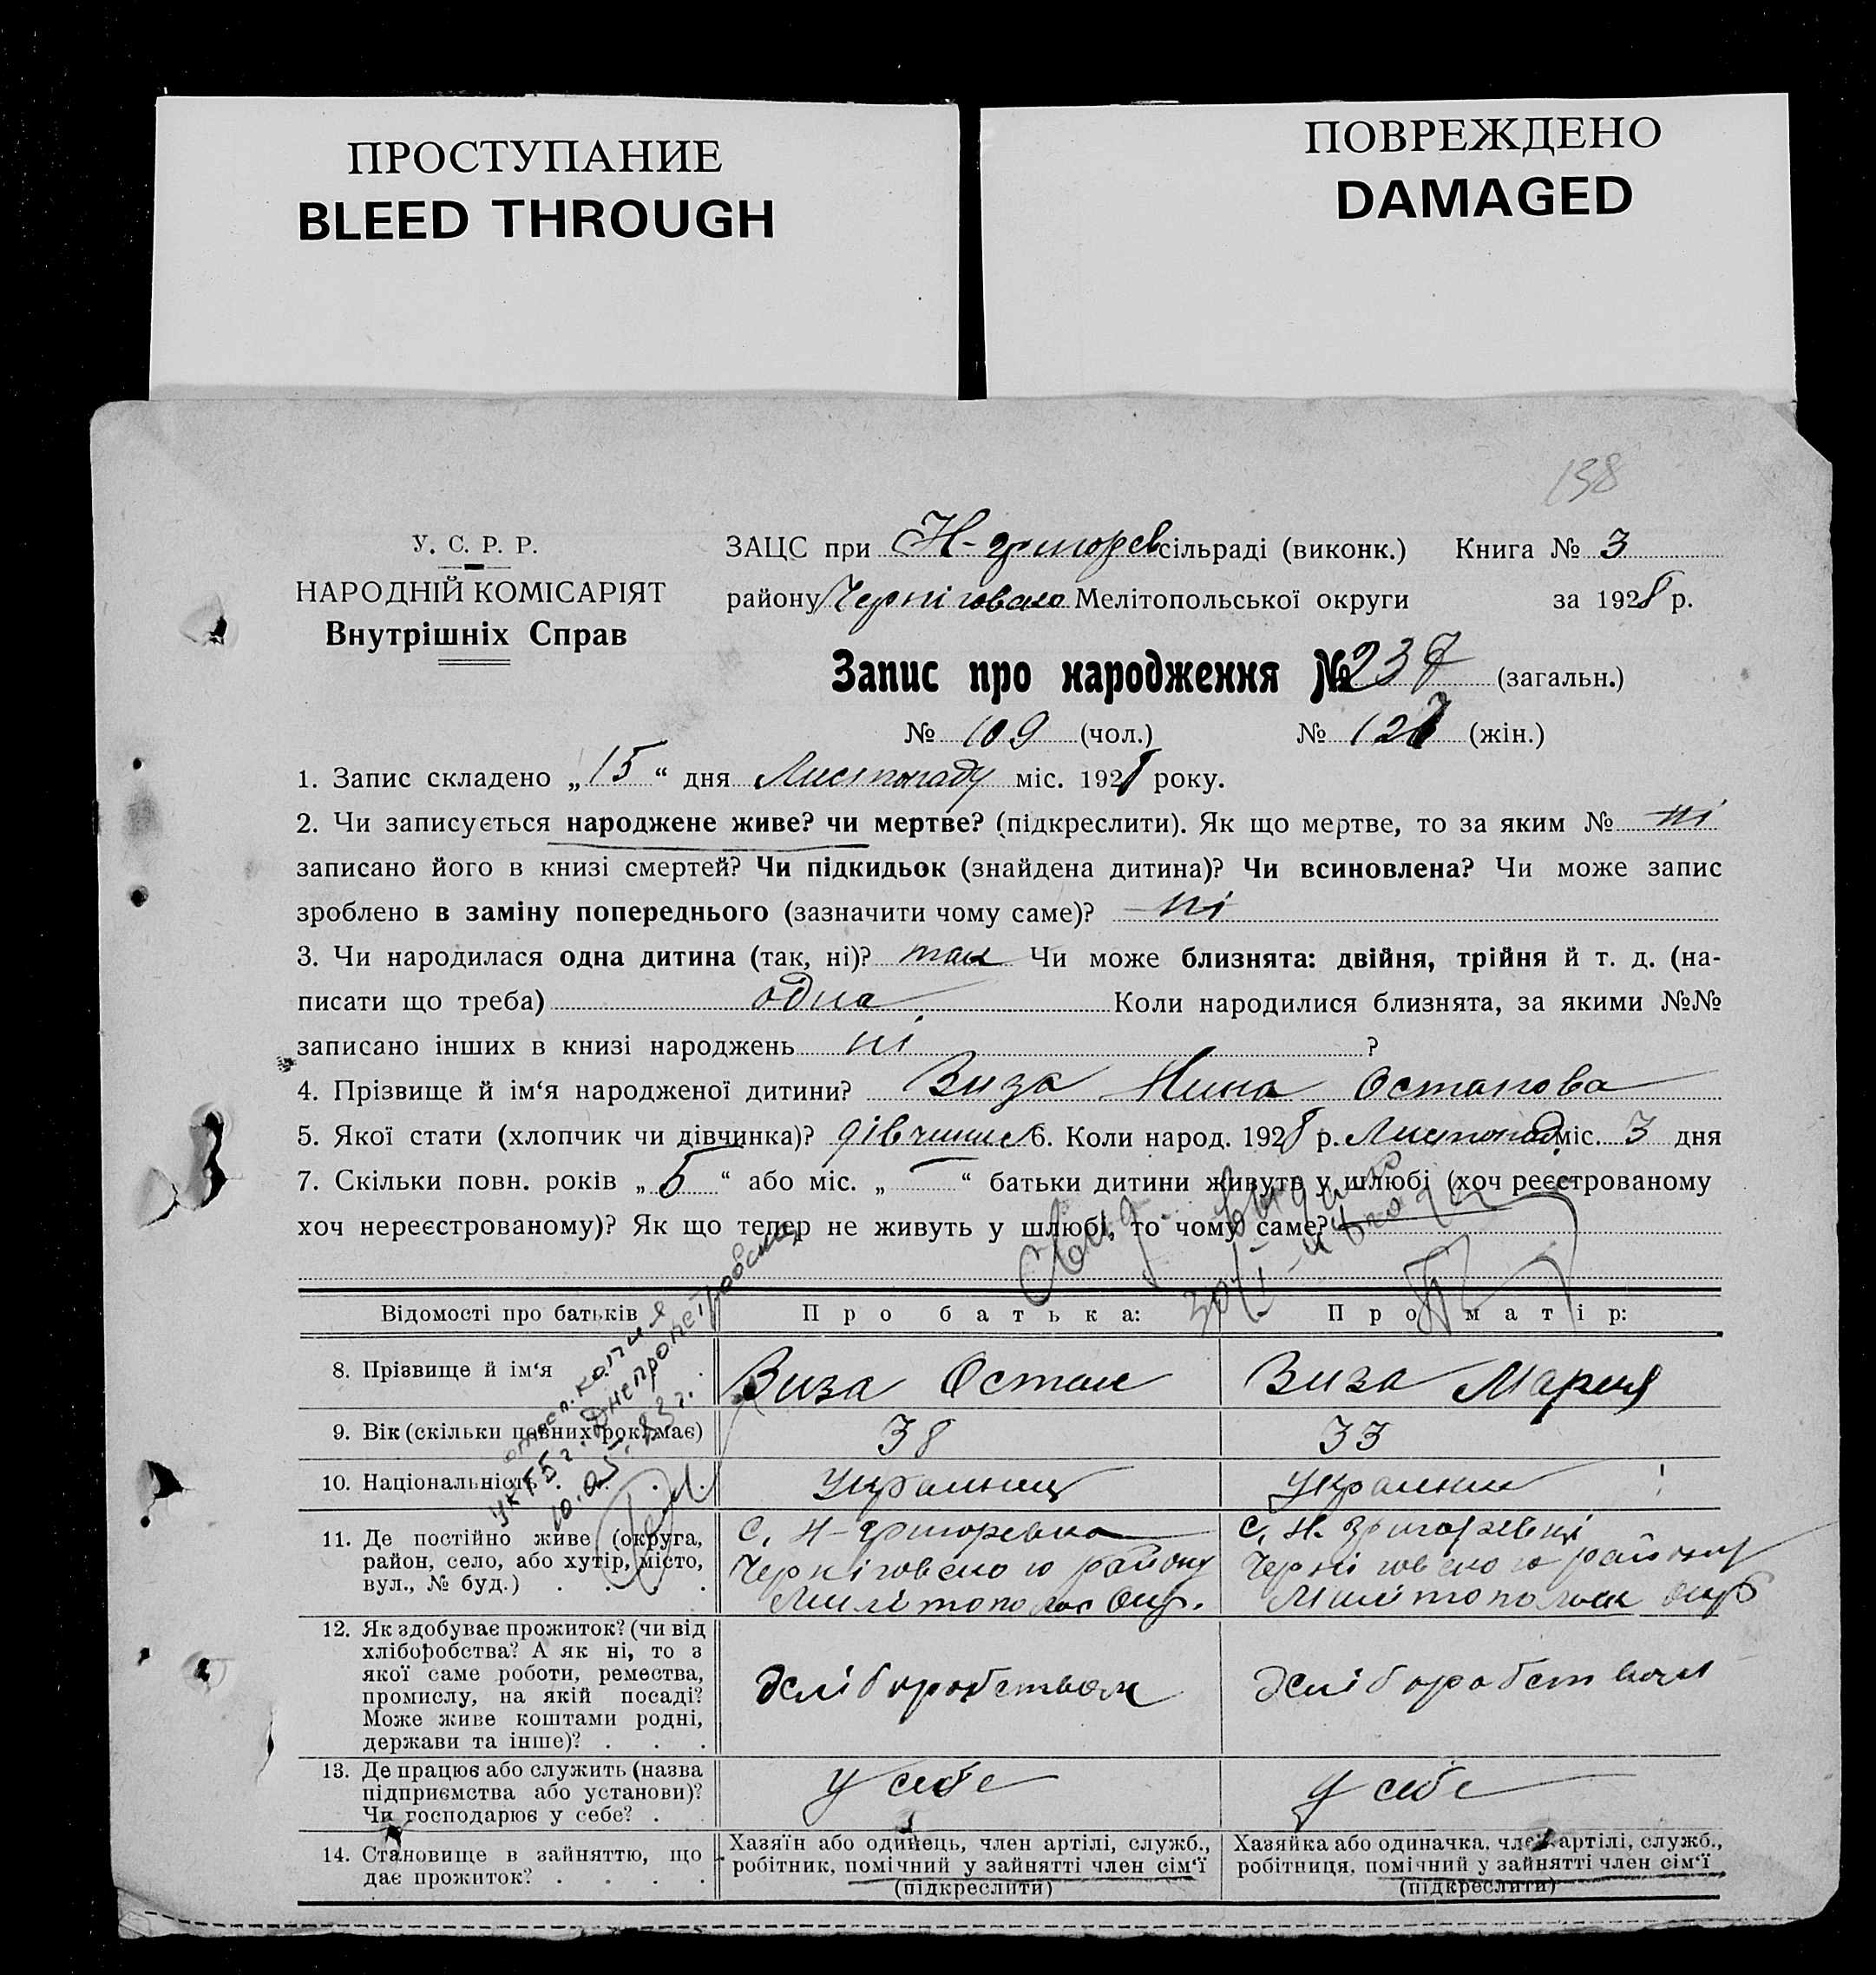 ПРОСТУПАНИЕ
BLEED THROUGH
ПОВРЕЖДЕНО
DAMAGED
138
У. С. Р. Р.
НАРОДНІЙ КОМІСАРІЯТ
Внутрішніх Справ
ЗАЦС при Н-григорев сільраді (виконк.) Книга № 3
району Чернiговсько Мелітопольської округи за 1928 р.
Запис про народження № 237 (загальн.)
№ 109 (чол.) № 127 (жін.)
1. Запис складено „ 15 “ дня Листопаду міс. 1928 року.
2. Чи записується народжене живе? чи мертве? (підкреслити). Як що мертве, то за яким № ні
записано його в книзі смертей? Чи підкидьок (знайдена дитина)? Чи всиновлена? Чи може запис
зроблено в заміну попереднього (зазначити чому саме)? ні
3. Чи народилася одна дитина (так, ні)? так Чи може близнята: двійня, трійня й т. д. (на-
писати що треба) одна Коли народилися близнята, за якими №№
записано інших в книзі народжень ні ?
4. Прізвище й ім‘я народженої дитини? Виза Нина Остапова
5. Якої стати (хлопчик чи дівчинка)? дівчинк 6. Коли народ. 1928 р. Листопад міс. 3 дня
7. Скільки повн. років „ 5 “ або міс. „ — “ батьки дитини живуть у шлюбі (хоч реєстрованому
хоч нереєстрованому)? Як що тепер не живуть у шлюбі, то чому саме?
отосл. копия
УКГБ г. Днепропетровска
10.05.83 г.
Відомості про батьків
Про батька:
Про матір:
8. Прізвище й ім‘я
Виза Остап
Виза Мария
9. Вік (скільки повних рок. має)
38
33
10. Національність
Украинец
Украинк
11. Де постійно живе (округа,
район, село, або хутір, місто,
вул., № буд.)
С. Н-григоревка
Чернiговского району
Милiтопольс Окр.
С. Н. Григоревкi
Чернiговского району
Милiтопольск окр
12. Як здобуває прожиток? (чи від
хліборобства? А як ні, то з
якої саме роботи, ремества,
промислу, на якій посаді?
Може живе коштами родні,
держави та інше)?
Хліборобством
Хліборобством
13. Де працює або служить (назва
підприємства або установи)?
Чи господарює у себе?
у себе
у себе
14. Становище в зайняттю, що
дає прожиток?
Хазяїн або одинець, член артілі, служб.,
робітник, помічний у зайнятті член сім‘ї
(підкреслити)
Хазяйка або одиначка, член артілі, служб.,
робітниця, помічний у зайнятті член сім‘ї
(підкреслити)